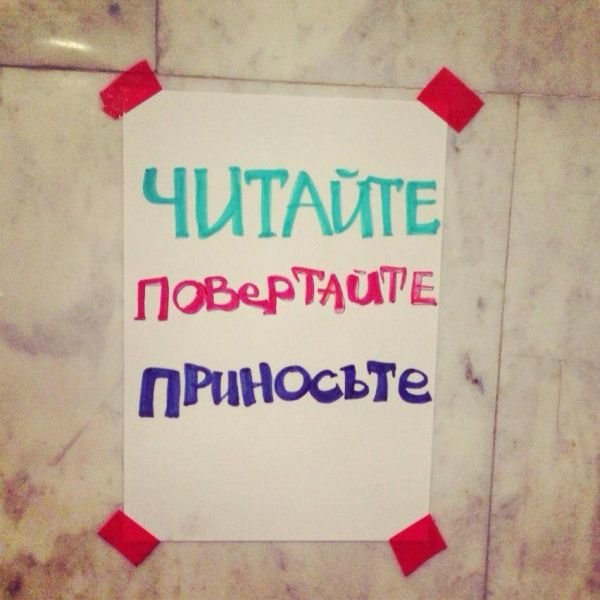 ЧИТАЙТЕ
ПОВЕРТАЙТЕ
ПРИНОСЬТЕ